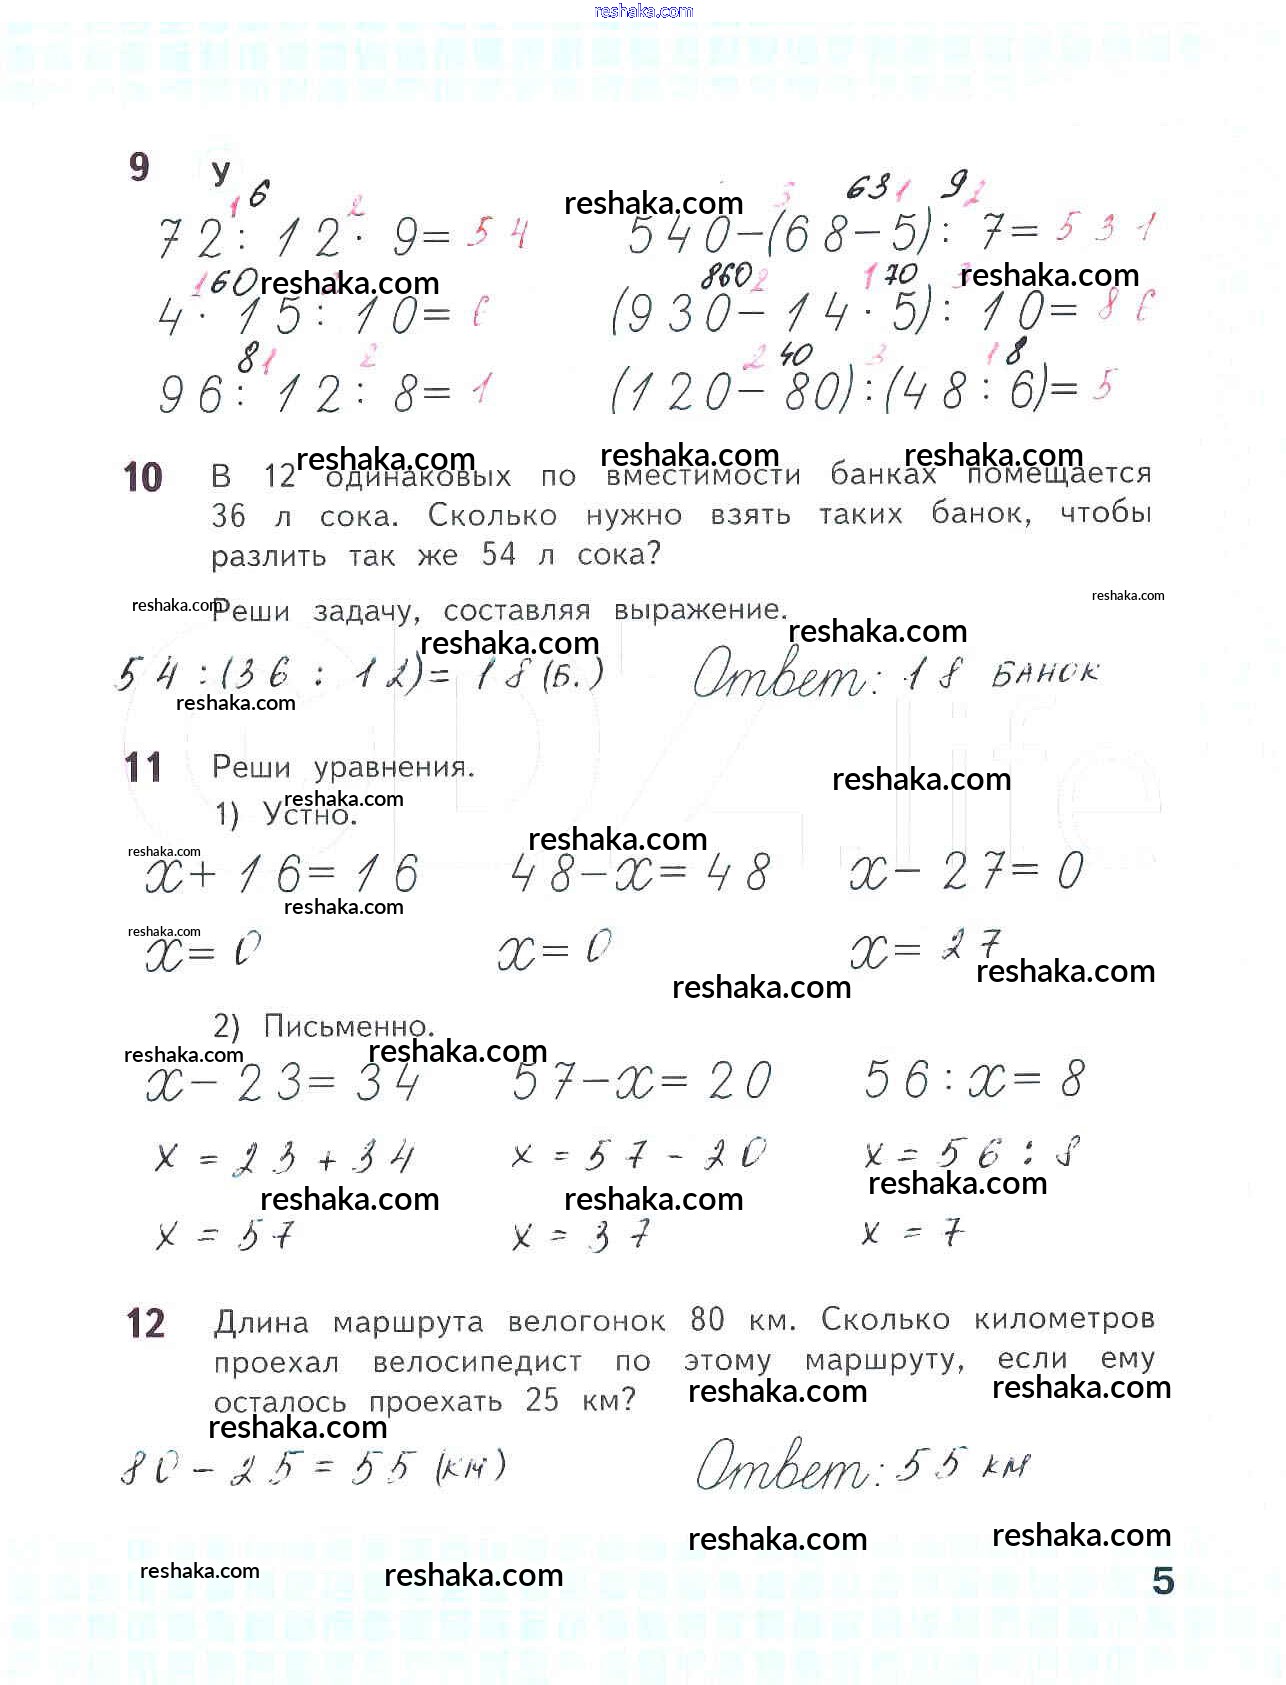 reshaka.com
9 У
1 6 2
72 : 12 · 9 = 54
reshaka.com
3 63 1 9 2
540 - (68 - 5) : 7 = 531
1 60 reshaka.com
4 · 15 : 10 = 6
860 2 1 70 3 reshaka.com
(930 - 14 · 5) : 10 = 86
8 1 2
96 : 12 : 8 = 1
2 40 3 1 8
(120 - 80) : (48 : 6) = 5
reshaka.com reshaka.com reshaka.com
10 В 12 одинаковых по вместимости банках помещается
36 л сока. Сколько нужно взять таких банок, чтобы
разлить так же 54 л сока?
reshaka.com Реши задачу, составляя выражение. reshaka.com
reshaka.com reshaka.com
54 : (36 : 12) = 18 (б.) Ответ: 18 банок
reshaka.com
11 Реши уравнения.
reshaka.com
reshaka.com
1) Устно.
reshaka.com
reshaka.com
x + 16 = 16 48 - x = 48 x - 27 = 0
reshaka.com
reshaka.com
x = 0 x = 0 x = 27
reshaka.com reshaka.com
2) Письменно.
reshaka.com reshaka.com
x - 23 = 34 57 - x = 20 56 : x = 8
x = 23 + 34 x = 57 - 20 x = 56 : 8
reshaka.com reshaka.com reshaka.com
x = 57 x = 37 x = 7
12 Длина маршрута велогонок 80 км. Сколько километров
проехал велосипедист по этому маршруту, если ему
reshaka.com reshaka.com
осталось проехать 25 км?
reshaka.com
80 - 25 = 55 (км) Ответ: 55 км
reshaka.com reshaka.com
reshaka.com reshaka.com
5